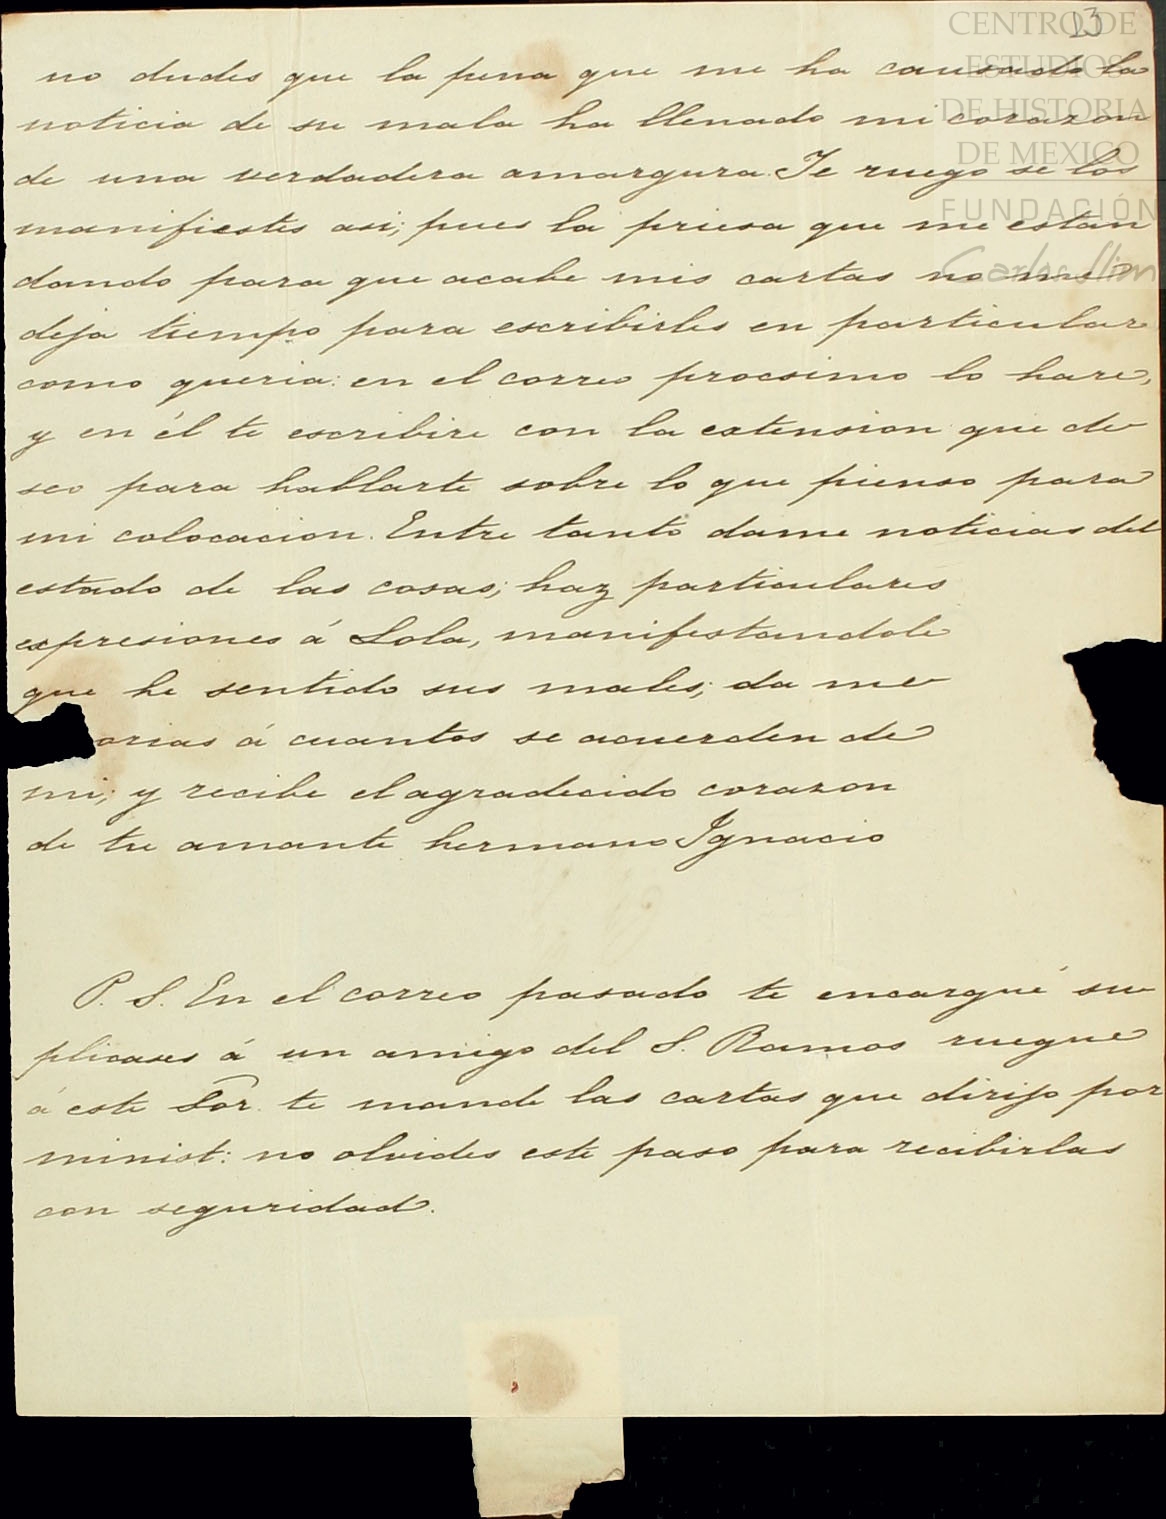 13
CENTRO DE
ESTUDIOS
DE HISTORIA
DE MEXICO
FUNDACIÓN
Carlos Slim
no dudes que la pena que me ha causado la
noticia de su mala ha llenado mi corazon
de una verdadera amargura. Te ruego se los
manifiestes asi; pues la priesa que me estan
dando para que acabe mis cartas no me
deja tiempo para escribirles en particular
como queria: en el correo procsimo lo hare,
y en él te escribire con la extension que de
seo para hablarte sobre lo que pienso para
mi colocacion. Entre tanto dame noticias del
estado de las cosas; haz particulares
expresiones á Lola, manifestandole
que he sentido sus males; da me
orias á cuantos se acuerden de
mi; y recibe el agradecido corazon
de tu amante hermano Ignacio
P. S. En el correo pasado te encargué su
plicases á un amigo del S. Ramos ruegue
á este Sor. te mande las cartas que dirijo por
minist: no olvides este paso para recibirlas
con seguridad.